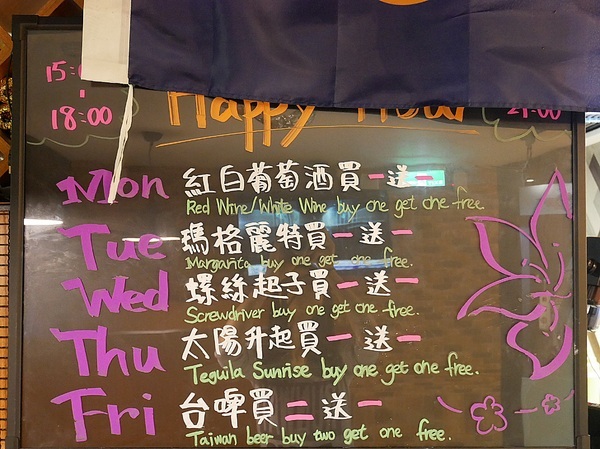 18:00
Happy Hour
21:00
Mon 紅白葡萄酒買一送一
Red Wine/White Wine buy one get one free.
Tue 瑪格麗特買一送一
Margarita buy one get one free.
Wed 螺絲起子買一送一
Screwdriver buy one get one free.
Thu 太陽升起買一送一
Teguila Sunrise buy one get one free.
Fri 台啤買二送一
Taiwan beer buy two get one free.